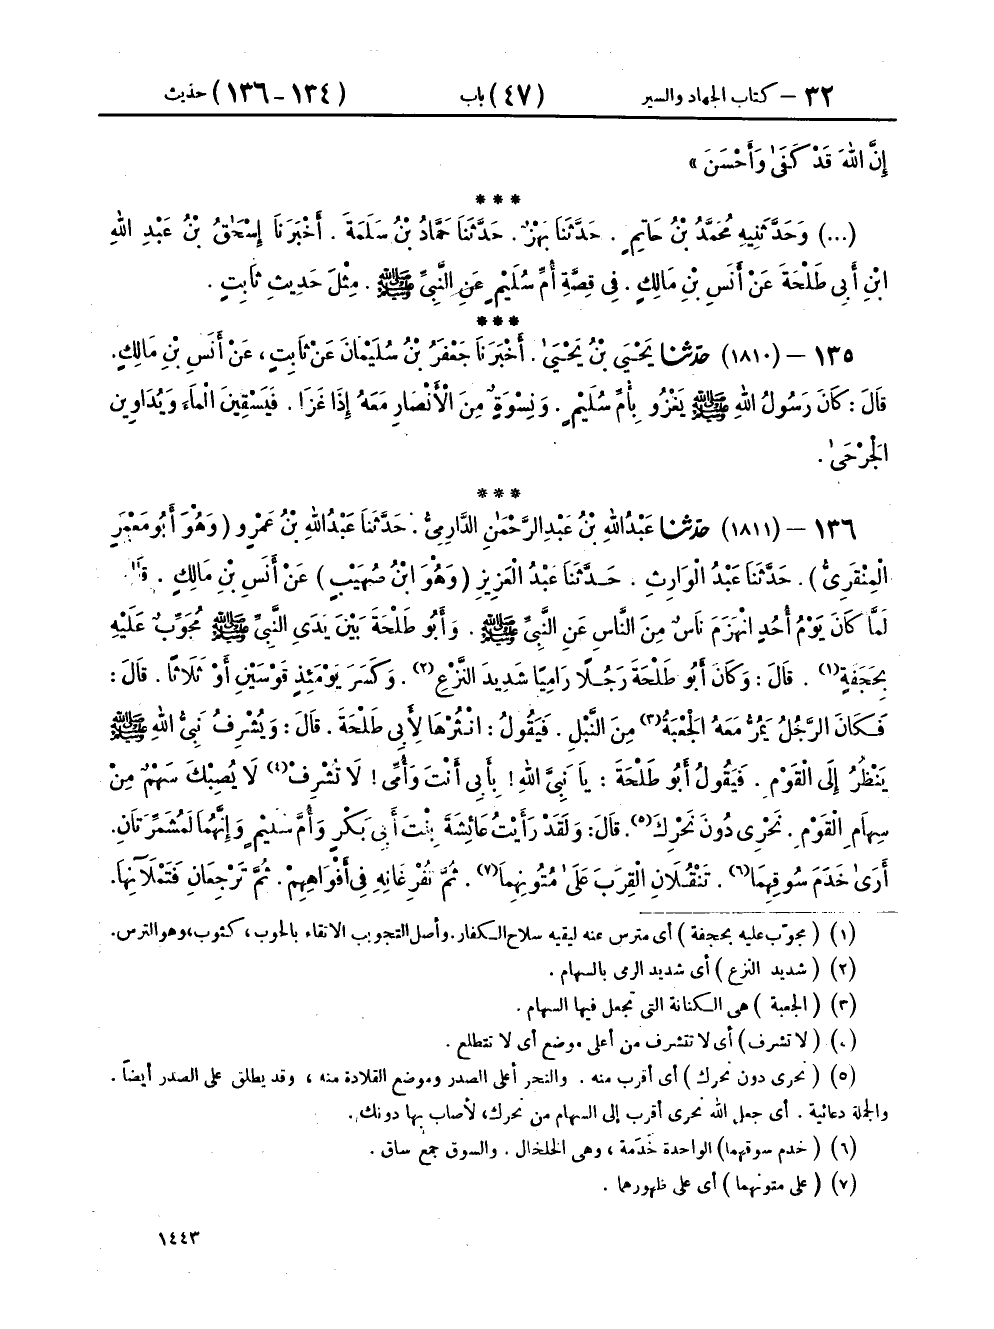 ٣٢ – كتاب الجهاد والسير (٤٧) باب (١٣٤–١٣٦) حديث
إِنَّ اللهَ قَدْ كَفَىٰ وَأَحْسَنَ »
***
(...) وَحَدَّثَنِيهِ مُحَمَّدُ بْنُ حَاتِمٍ . حَدَّثَنَا بَهْزٌ . حَدَّثَنَا حَمَّادُ بْنُ سَلَمَةَ . أَخْبَرَنَا إِسْحَٰقُ بْنُ عَبْدِ اللهِ
ابْنِ أَبِي طَلْحَةَ عَنْ أَنَسِ بْنِ مَالِكٍ . فِي قِصَّةِ أُمِّ سُلَيْمٍ عَنِ النَّبِيِّ ﷺ . مِثْلَ حَدِيثِ ثَابِتٍ .
***
١٣٥ – (١٨١٠) حَدَّثَنَا يَحْيَى بْنُ يَحْيَىٰ . أَخْبَرَنَا جَعْفَرُ بْنُ سُلَيْمَانَ عَنْ ثَابِتٍ ، عَنْ أَنَسِ بْنِ مَالِكٍ.
قَالَ : كَانَ رَسُولُ اللهِ ﷺ يَغْزُو بِأُمِّ سُلَيْمٍ . وَنِسْوَةٍ مِنَ الْأَنْصَارِ مَعَهُ إِذَا غَزَا . فَيَسْقِينَ الْمَاءَ وَيُدَاوِينَ
الْجَرْحَىٰ .
***
١٣٦ – (١٨١١) حَدَّثَنَا عَبْدُاللهِ بْنُ عَبْدِالرَّحْمَٰنِ الدَّارِمِيُّ . حَدَّثَنَا عَبْدُاللهِ بْنُ عَمْرٍو ( وَهُوَ أَبُو مَعْمَرٍ
الْمِنْقَرِيُّ ) . حَدَّثَنَا عَبْدُ الْوَارِثِ . حَدَّثَنَا عَبْدُ الْعَزِيزِ ( وَهُوَ ابْنُ صُهَيْبٍ ) عَنْ أَنَسِ بْنِ مَالِكٍ . قَالَ:
لَمَّا كَانَ يَوْمُ أُحُدٍ انْهَزَمَ نَاسٌ مِنَ النَّاسِ عَنِ النَّبِيِّ ﷺ . وَأَبُو طَلْحَةَ بَيْنَ يَدَىِ النَّبِيِّ ﷺ مُجَوِّبٌ عَلَيْهِ
بِحَجَفَةٍ(١) . قَالَ : وَكَانَ أَبُو طَلْحَةَ رَجُلًا رَامِيًا شَدِيدَ النَّزْعِ(٢) . وَكَسَرَ يَوْمَئِذٍ قَوْسَيْنِ أَوْ ثَلَاثًا . قَالَ :
فَكَانَ الرَّجُلُ يَمُرُّ مَعَهُ الْجَعْبَةُ(٣) مِنَ النَّبْلِ . فَيَقُولُ : انْثُرْهَا لِأَبِي طَلْحَةَ . قَالَ : وَيُشْرِفُ نَبِيُّ اللهِ ﷺ
يَنْظُرُ إِلَى الْقَوْمِ . فَيَقُولُ أَبُو طَلْحَةَ : يَا نَبِيَّ اللهِ ! بِأَبِي أَنْتَ وَأُمِّي ! لَا تُشْرِفْ(٤) لَا يُصِبْكَ سَهْمٌ مِنْ
سِهَامِ الْقَوْمِ . نَحْرِي دُونَ نَحْرِكَ(٥). قَالَ: وَلَقَدْ رَأَيْتُ عَائِشَةَ بِنْتَ أَبِي بَكْرٍ وَأُمَّ سُلَيْمٍ وَإِنَّهُمَا لَمُشَمِّرَتَانِ.
أَرَىٰ خَدَمَ سُوقِهِمَا(٦) . تَنْقُلَانِ الْقِرَبَ عَلَىٰ مُتُونِهِمَا(٧) . ثُمَّ تُفْرِغَانِهِ فِي أَفْوَاهِهِمْ . ثُمَّ تَرْجِعَانِ فَتَمْلَآنِهَا.
(١) ( مجوّب عليه بحجفة ) أي مترس عنه ليقيه سلاح الكفار. وأصل التجويب الاتقاء بالجوب ، كثوب، وهو الترس.
(٢) ( شديد النزع ) أي شديد الرمي بالسهام .
(٣) ( الجعبة ) هي الكنانة التي تجعل فيها السهام .
(٤) ( لا تشرف ) أي لا تتشرف من أعلى موضع أي لا تتطلع .
(٥) ( نحرى دون نحرك ) أي أقرب منه . والنحر أعلى الصدر وموضع القلادة منه ، وقد يطلق على الصدر أيضاً .
والجملة دعائية . أي جعل الله نحرى أقرب إلى السهام من نحرك، لأصاب بها دونك .
(٦) ( خدم سوقهما ) الواحدة خَدَمة ، وهي الخلخال . والسوق جمع ساق .
(٧) ( على متونهما ) أي على ظهورهما .
١٤٤٣